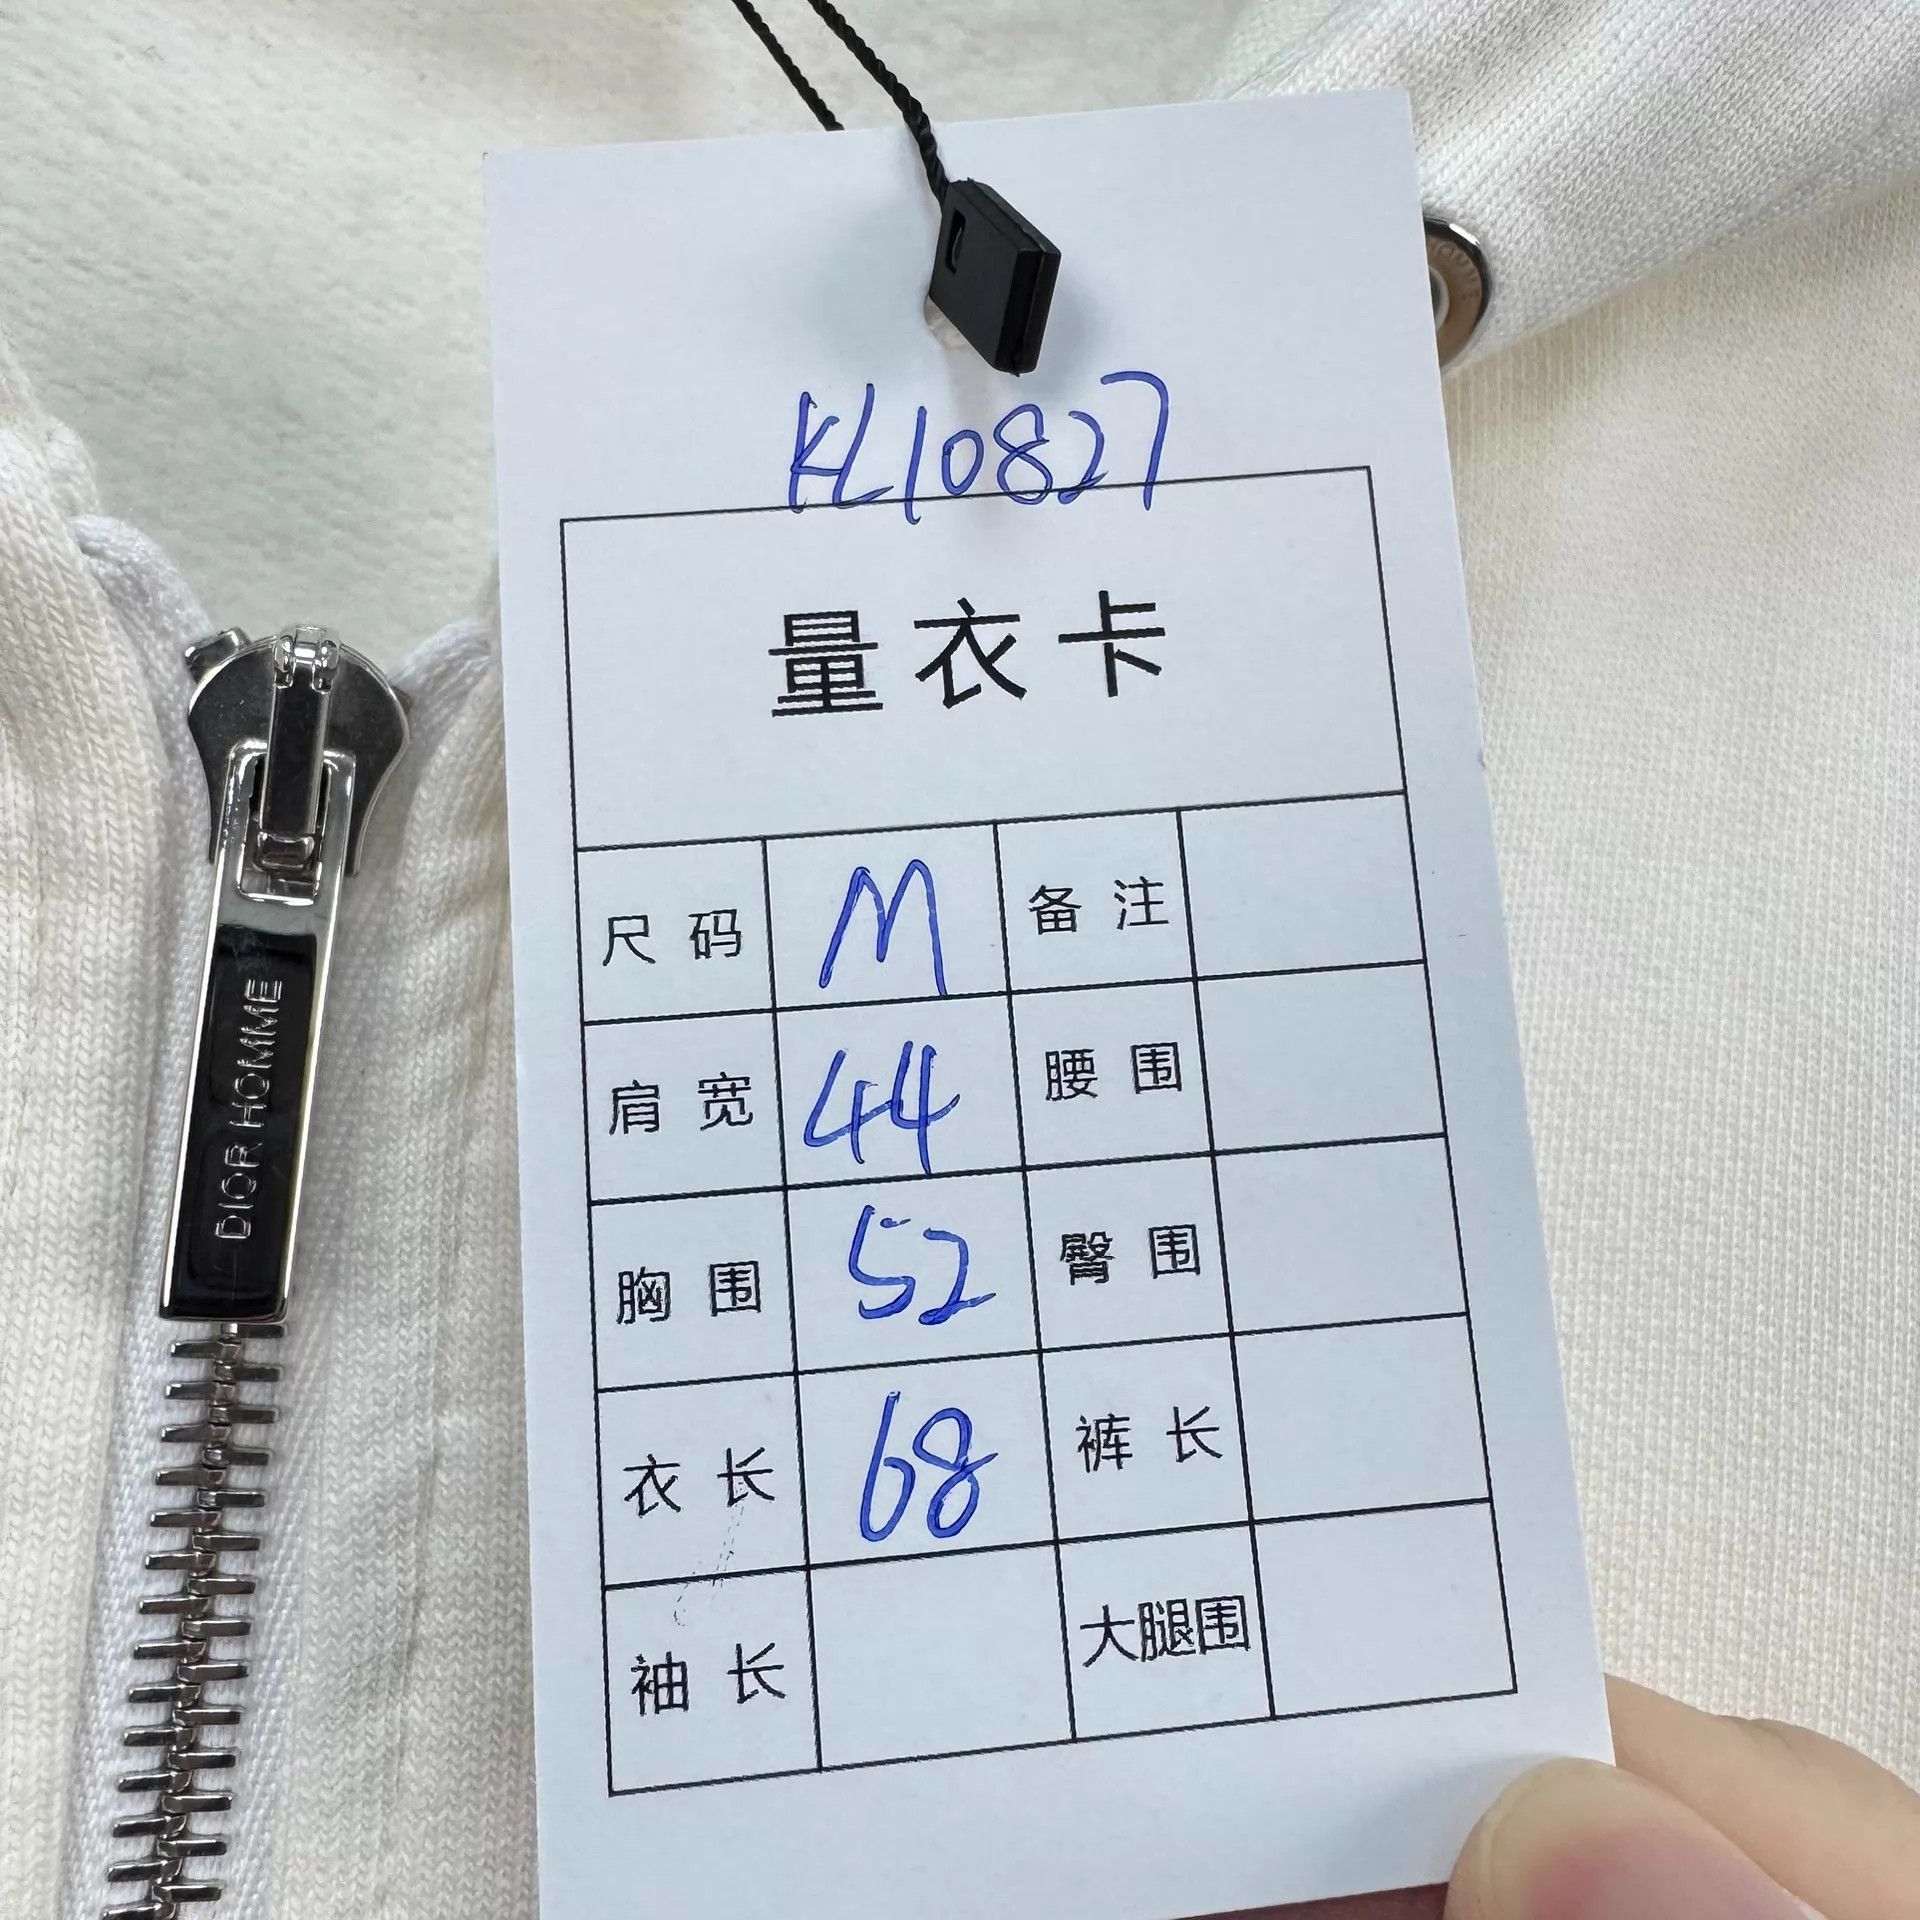 KL10827
量衣卡
尺码 M 备注
肩宽 44 腰围
胸围 52 臀围
衣长 68 裤长
袖长 大腿围
DIOR HOMME